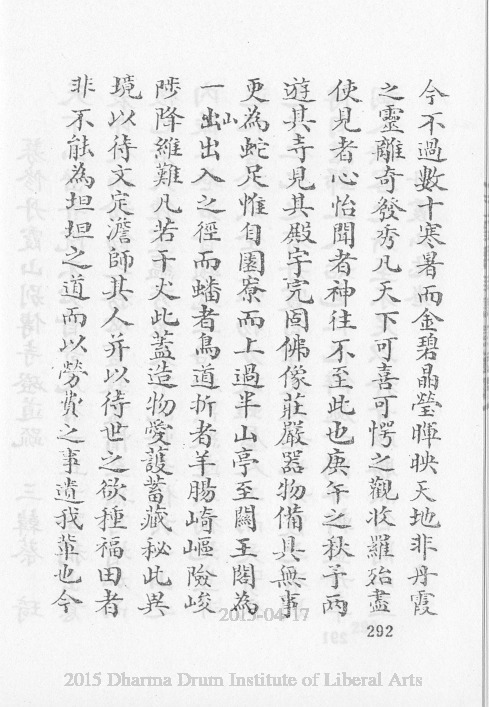 今不過數十寒暑而金碧晶瑩暉映天地非丹霞
之靈離奇發秀凡天下可喜可愕之觀收羅殆盡
使見者心怡聞者神往不至此也庚午之秋予兩
遊其寺見其殿宇完固佛像莊嚴器物備具無事
更為蛇足惟自園寮而上過半山亭至關王閣為
一山出入之徑而蟠者鳥道折者羊腸崎嶇險峻
陟降維難凡若干丈此蓋造物愛護蓄藏秘此異
境以待文定澹師其人并以待世之欲種福田者
非不能為坦坦之道而以勞費之事遺我輩也今
292
2013-04-17
2015 Dharma Drum Institute of Liberal Arts